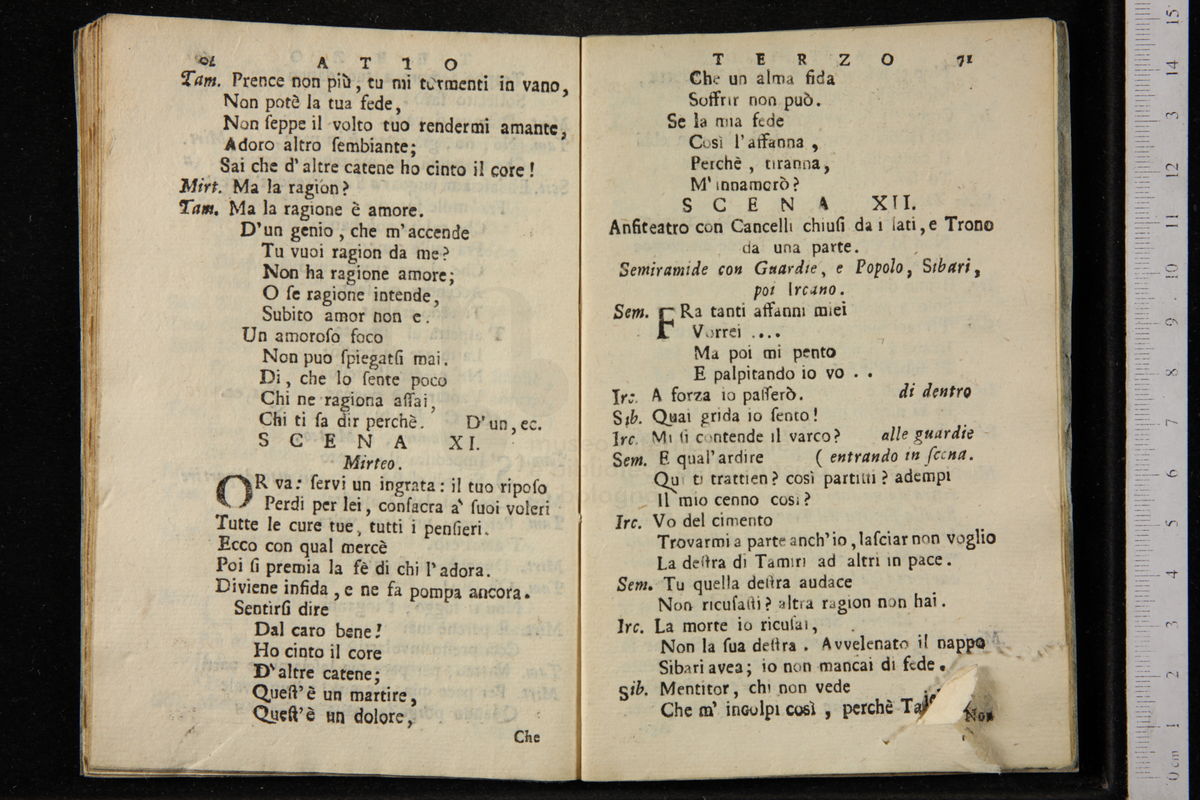 ATIO
Tam. Prence non più, tu mi tormenti in vano,
Non potè la tua fede,
Non ſeppe il volto tuo rendermi amante,
Adoro altro ſembiante;
Sai che d'altre catene ho cinto il core!
Mirt. Ma la ragion?
Tam. Ma la ragione è amore.
D'un genio, che m'accende
Tu vuoi ragion da me?
Non ha ragione amore;
O ſe ragione intende,
Subito amor non e.
Un amoroſo foco
Non puo ſpiegatſi mai.
Di, che lo ſente poco
Chi ne ragiona aſſai,
Chi ti ſa dir perchè. D'un, ec.
SCENA XI.
Mirteo.
OR va: ſervi un ingrata: il tuo ripoſo
Perdi per lei, conſacra a' ſuoi voleri
Tutte le cure tue, tutti i penſieri.
Ecco con qual mercè
Poi ſi premia la fè di chi l'adora.
Diviene infida, e ne fa pompa ancora.
Sentirſi dire
Dal caro bene!
Ho cinto il core
D'altre catene;
Queſt'è un martire,
Queſt'è un dolore,
Che
TERZO 71
Che un alma fida
Soffrir non può.
Se la mia fede
Così l'affanna,
Perchè, tiranna,
M'innamorò?
SCENA XII.
Anfiteatro con Cancelli chiuſi da i lati, e Trono
da una parte.
Semiramide con Guardie, e Popolo, Sibari,
poi Ircano.
Sem. FRa tanti affanni miei
Vorrei ....
Ma poi mi pento
E palpitando io vo . .
Irc. A forza io paſſerò. di dentro
Sib. Quai grida io ſento!
Irc. Mi ſi contende il varco? alle guardie
Sem. E qual'ardire ( entrando in ſcena.
Qui ti trattien? così partiſti? adempi
Il mio cenno così?
Irc. Vo del cimento
Trovarmi a parte anch'io, laſciar non voglio
La deſtra di Tamiri ad altri in pace.
Sem. Tu quella deſtra audace
Non ricuſaſti? altra ragion non hai.
Irc. La morte io ricuſai,
Non la ſua deſtra. Avvelenato il nappo
Sibari avea; io non mancai di fede.
Sib. Mentitor, chi non vede
Che m' incolpi così, perchè
Non